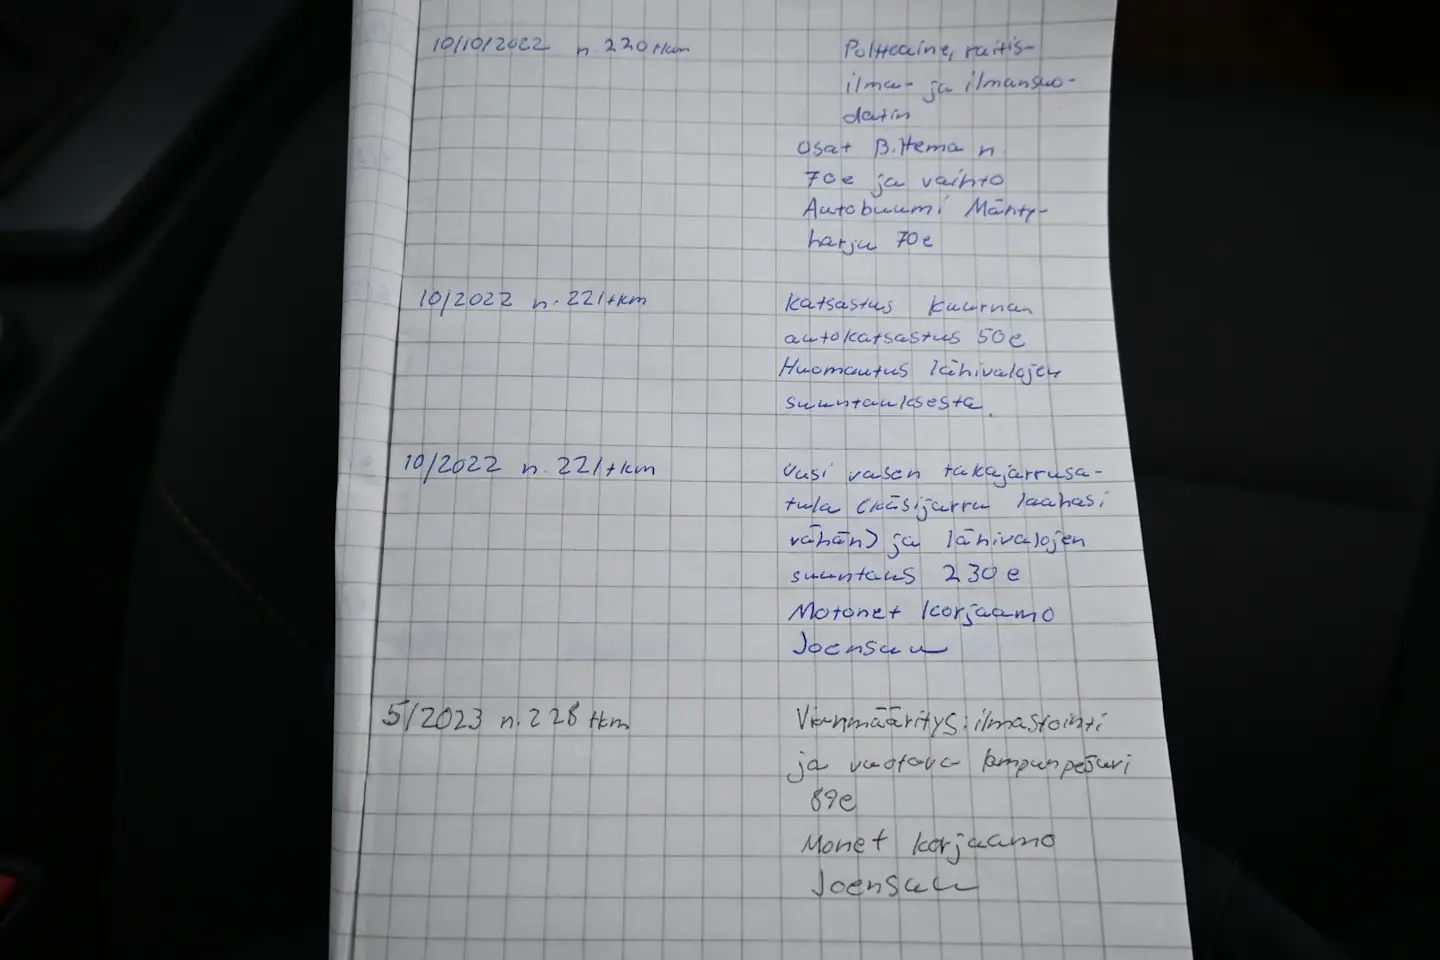 10/10/2022 n. 220 tkm Polttoaine, raitis-
ilma- ja ilmansuo-
datin
Osat B.Hema n.
70e ja vaihto
Autobuumi Mänty-
harju 70e
10/2022 n. 221tkm Katsastus Kuurnan
autokatsastus 50e
Huomautus lähivalojen
suuntauksesta.
10/2022 n. 221tkm Uusi vasen takajarrusa-
tula (käsijarru laahasi
vähän) ja lähivalojen
suuntaus 230e
Motonet korjaamo
Joensuu
5/2023 n. 228 tkm Vianmääritys: ilmastointi
ja vuotava lampunpesuri
89e
Monet korjaamo
Joensuu